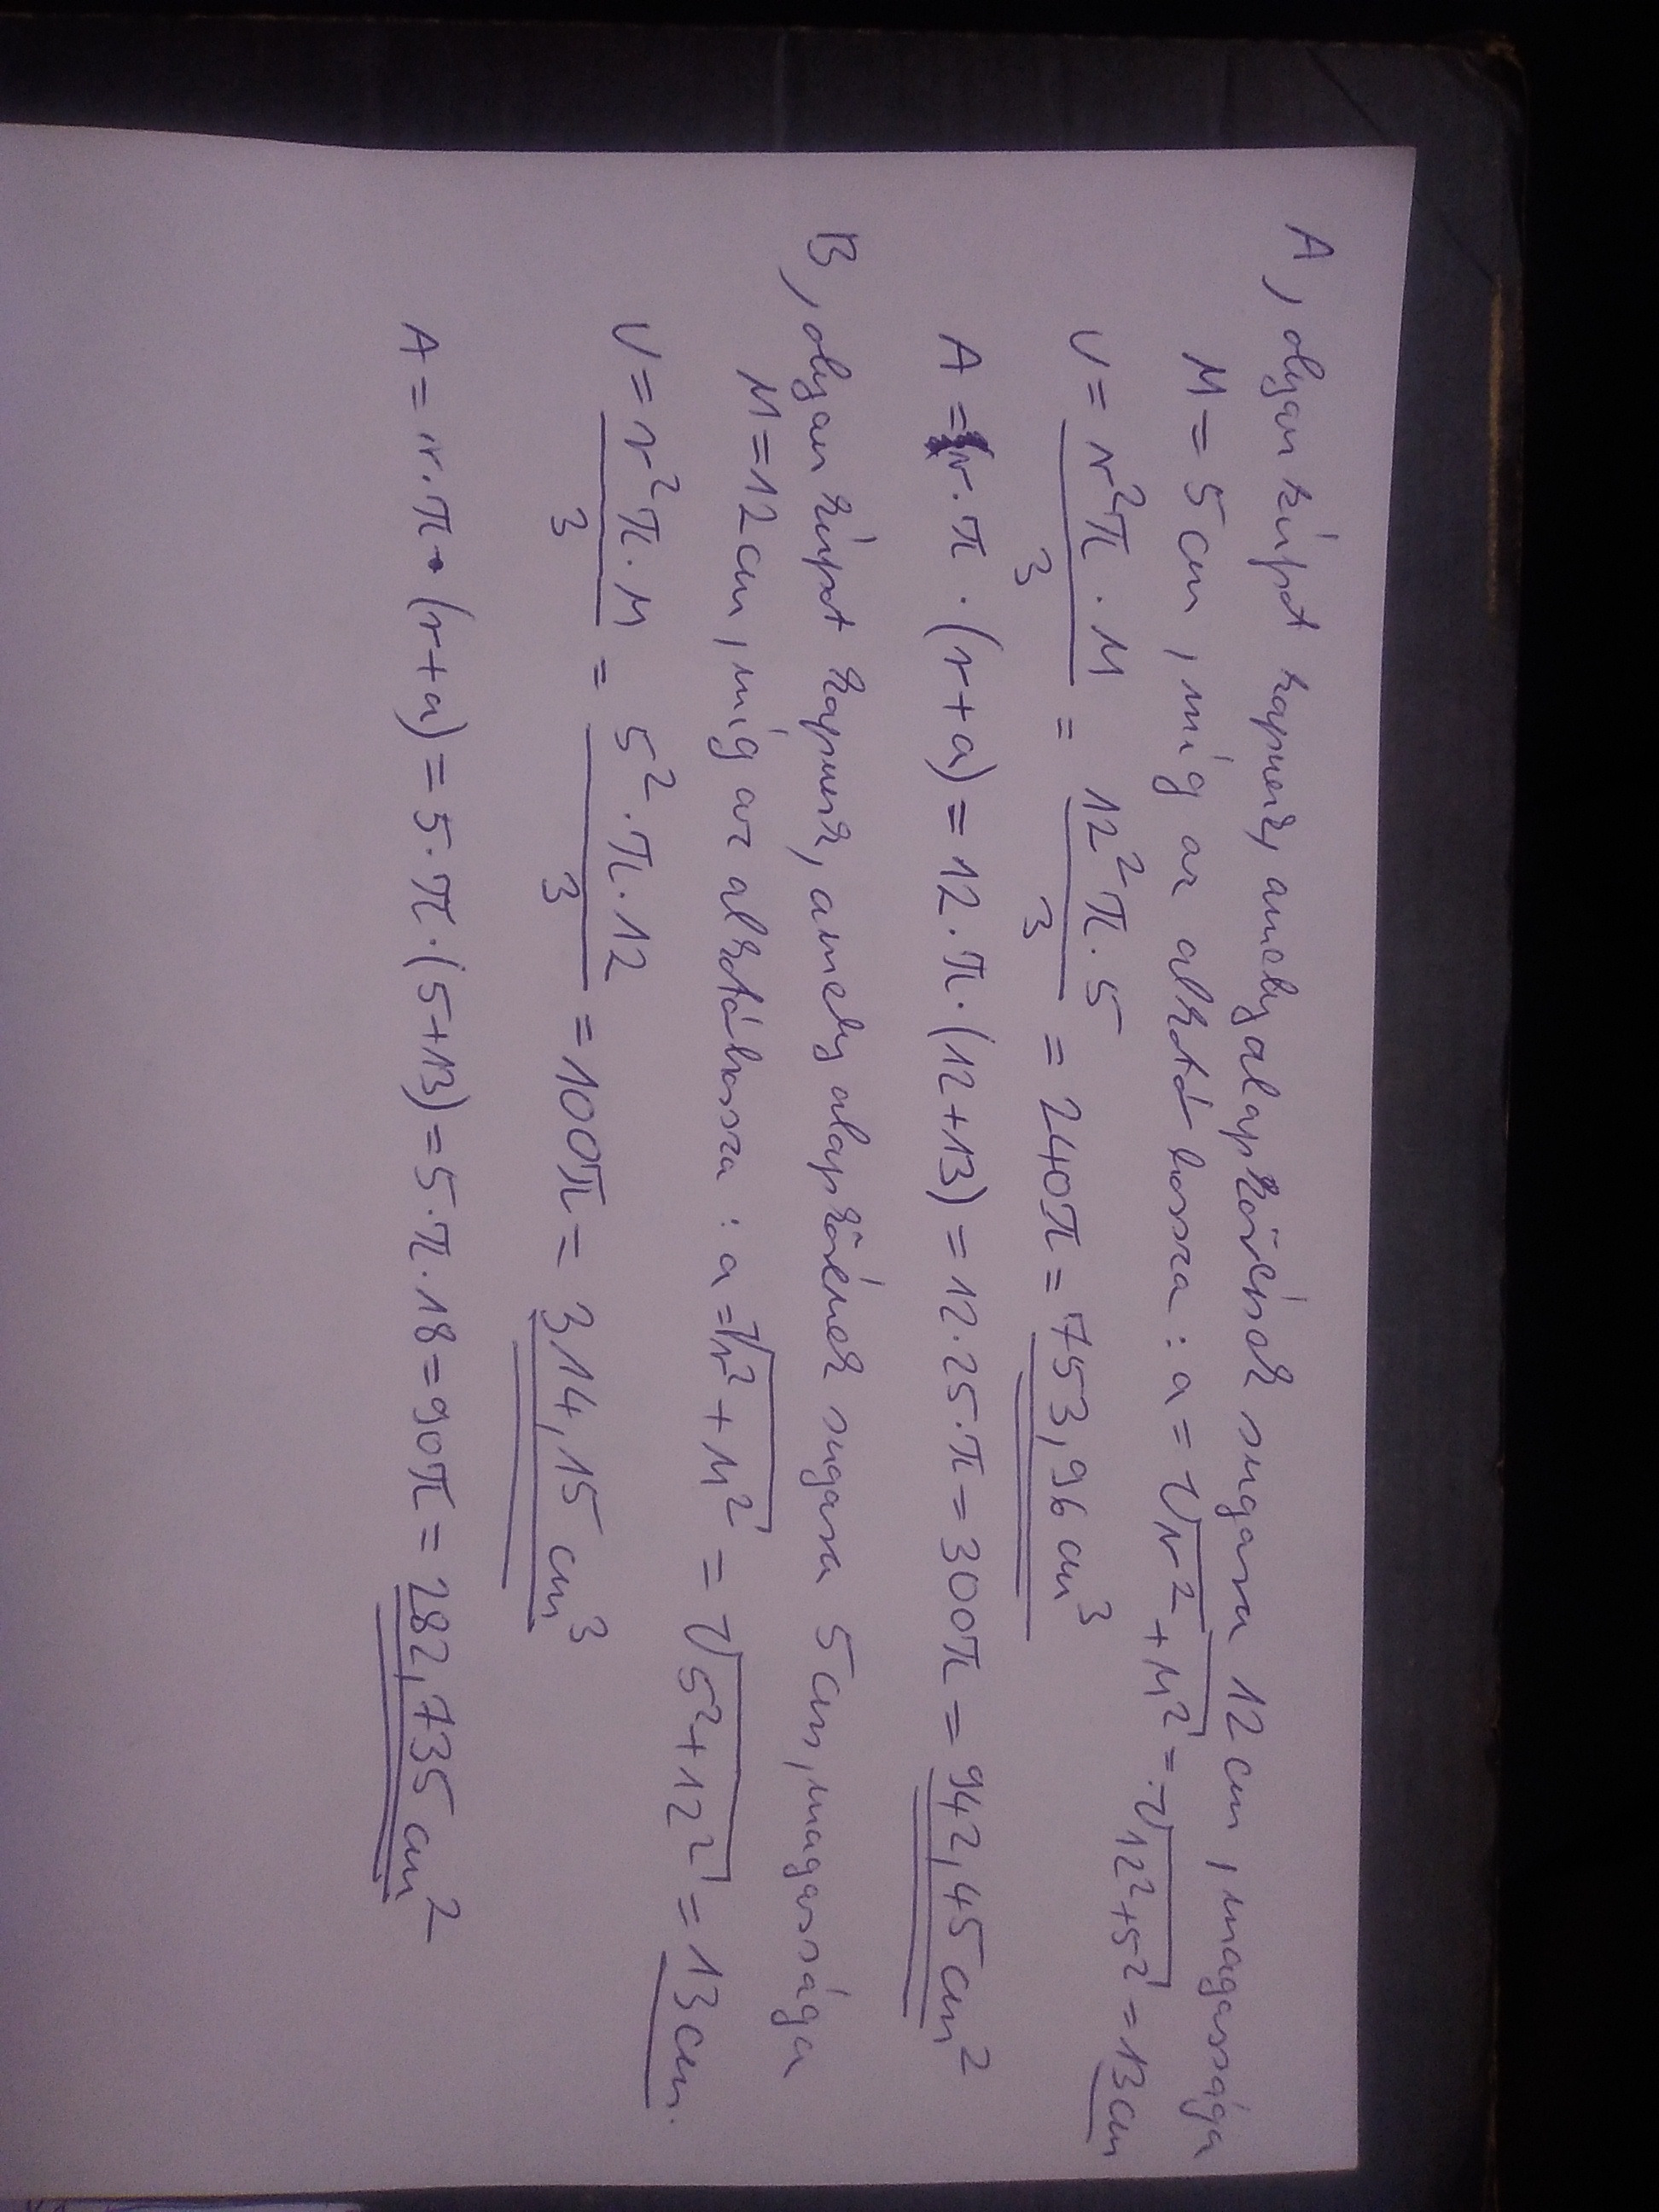 A, olyan kúpot kapunk, amely alapkörének sugara 12 cm, magassága
M = 5 cm, míg az alkotó hossza : a = √r² + M² = √12² + 5² = 13 cm
V = r²π · M / 3 = 12²π · 5 / 3 = 240π = 753,96 cm³
A = r · π · (r + a) = 12 · π · (12 + 13) = 12 · 25 · π = 300π = 942,45 cm²
B, olyan kúpot kapunk, amely alapkörének sugara 5 cm, magassága
M = 12 cm, míg az alkotó hossza : a = √r² + M² = √5² + 12² = 13 cm.
V = r²π · M / 3 = 5² · π · 12 / 3 = 100π = 314,15 cm³
A = r · π · (r + a) = 5 · π · (5 + 13) = 5 · π · 18 = 90π = 282,735 cm²